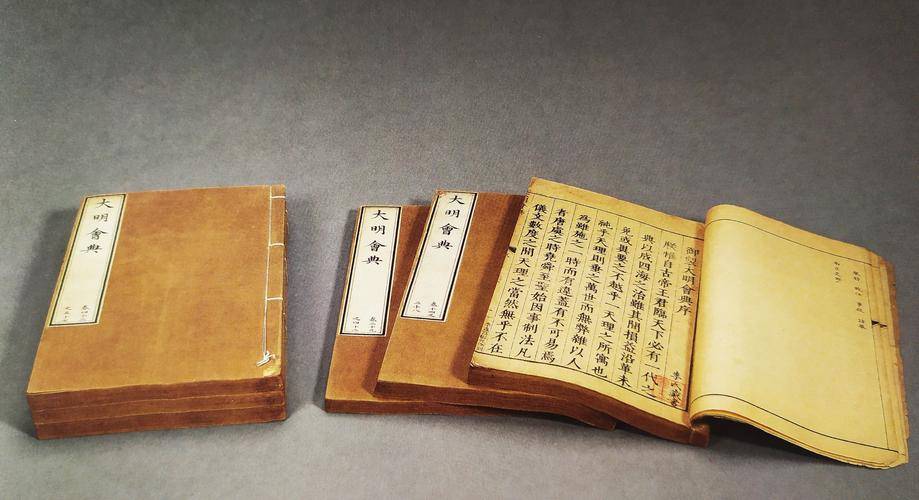 大明會典
大明會典
卷三十九
之四十三
大明會典
御製大明會典序
朕惟自古帝王君臨天下必有一代之
典以成四海之治雖其間損益沿革未
免或異要之不越乎天理之所寓也
純乎天理則垂之萬世而無弊雜以人
為雖施之一時而有違蓋有不可易焉
者唐虞之時堯舜至聖始因事制法凡
儀文數度之間天理之當然無乎不在
李氏藏書